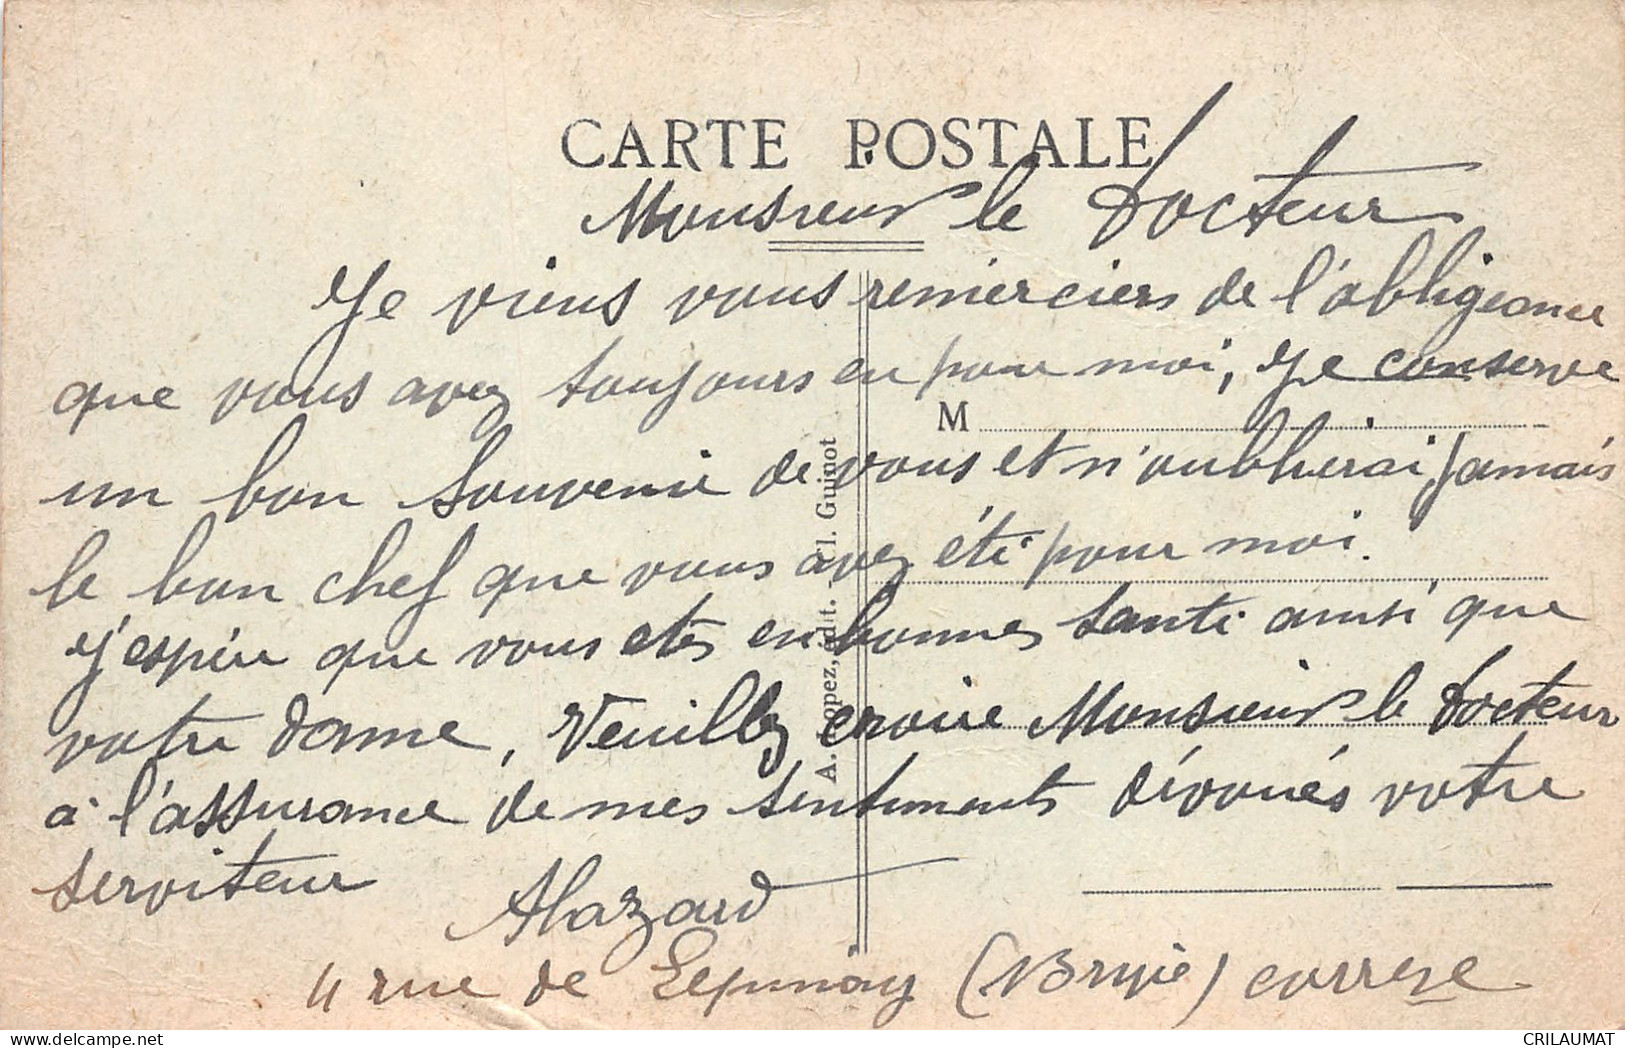 CARTE POSTALE
Monsieur le Docteur
Je viens vous remerciers de l'abligeance
que vous avez toujours eu pour moi, Je conserve
M
un bon souvenir de vous et n'oublierai jamais
le bon chef que vous avez été pour moi.
J'espère que vous etes en bonnes santé ainsi que
votre dame, Veuillez croire Monsieur le Docteur
à l'assurance de mes sentiments dévoués votre
serviteur
Alazard
4 rue de (Brive) correze
A. Lopez, édit. - Cl. Guinot
CRILAUMAT